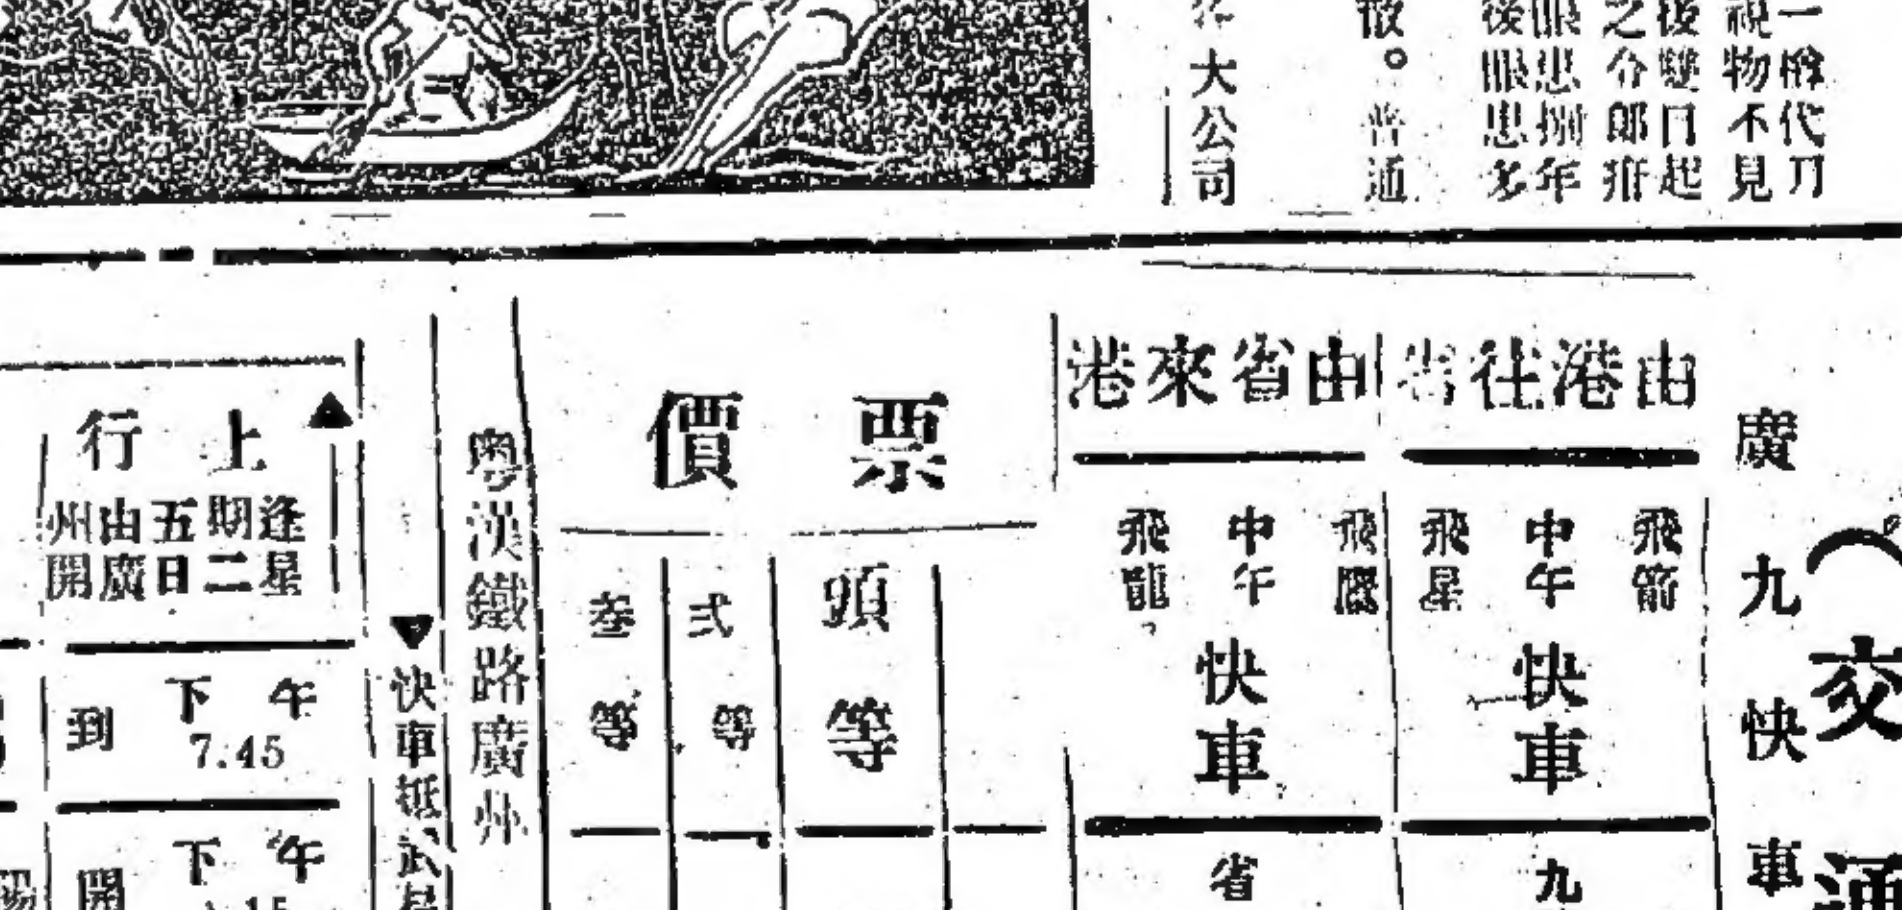 一㡌代刀
視物不見
後雙日起
之介郎
眼患捌年
後眼患多
散。普通
大公司
交通
廣九快車
由港往省
飛箭
中午
飛星
快車
九
由省來港
飛鷹
中午
飛龍
快車
省
票價
頭等
弍等
叁等
粤漢鐵路廣州
▼快車抵武昌
▲
上行
逢星期二五日由廣州開
午下
7.45
到
午下
開